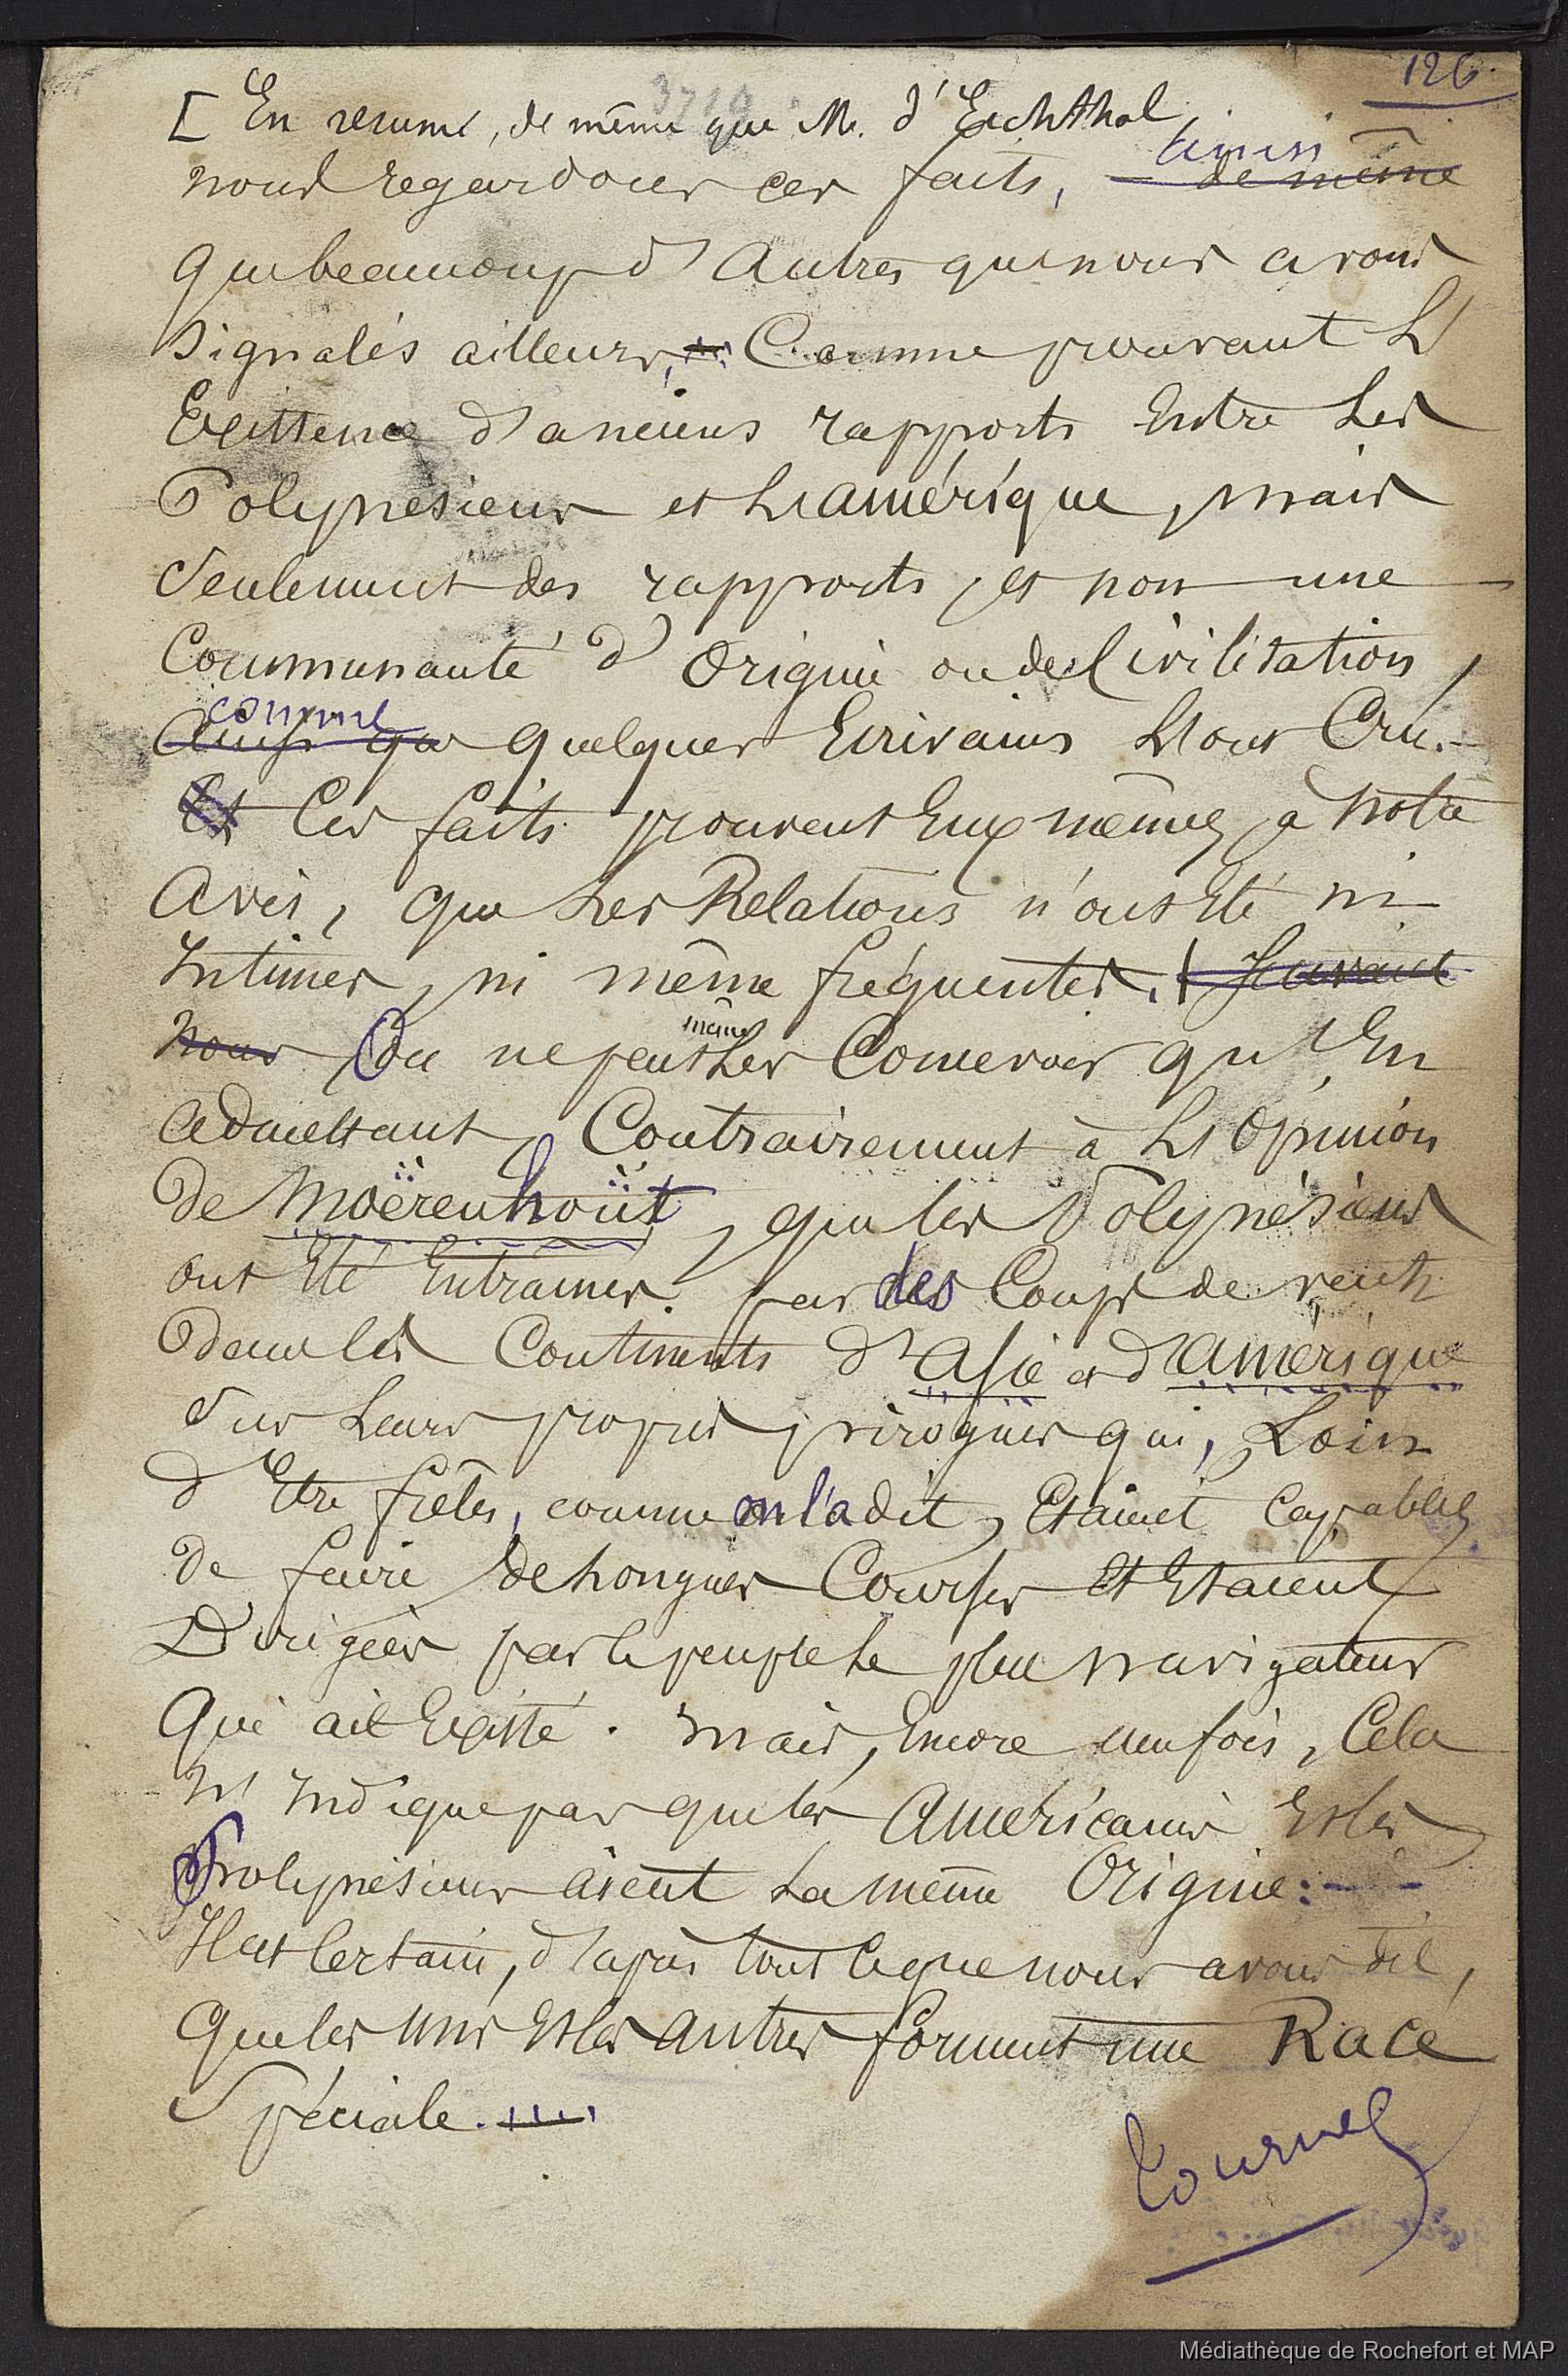 126
3719
[ En resumé, de même que M. d'Eichthal
nous regardons ces faits, ainsi de même
que beaucoup d'autres que nous avons
signalés ailleurs, Comme prouvant L'
Existence d'anciens rapports Entre Les
Polynésiens et L'amérique, mais
Seulement des rapports, et non une
Communauté d'Origine ou de Civilisation,
comme
Ainsi que quelques Ecrivains L'ont Cru. -
Et Ces faits prouvent Eux mêmes, à Notre
Avis, que Les Relations n'ont Eté ni
Intimes, ni même fréquentes. Suivant
même
nous On ne peut Les Concevoir qu'En
admettant, Contrairement à L'Opinion
de Moërenhoüt, que les Polynésiens
ont Eté Entrainés par des Coups de vents
dans les Continents d'Asie et d'amérique
Sur Leurs propres pirogues qui, Loin
d'Etre frêles, comme on l'a dit, Etaient Capables
de faire de Longues Courses Et Etaient
Dirigées par le peuple Le plus navigateur
Qui ait Existé. Mais, Encore une fois, Cela
N'Indique pas que les Américains Et les
Polynésiens aient La même Origine : -
Il est Certain, d'après tout ce que nous avons dit,
Que les Uns Et les autres forment une Race
Spéciale.....
Tournez
Médiathèque de Rochefort et MAP